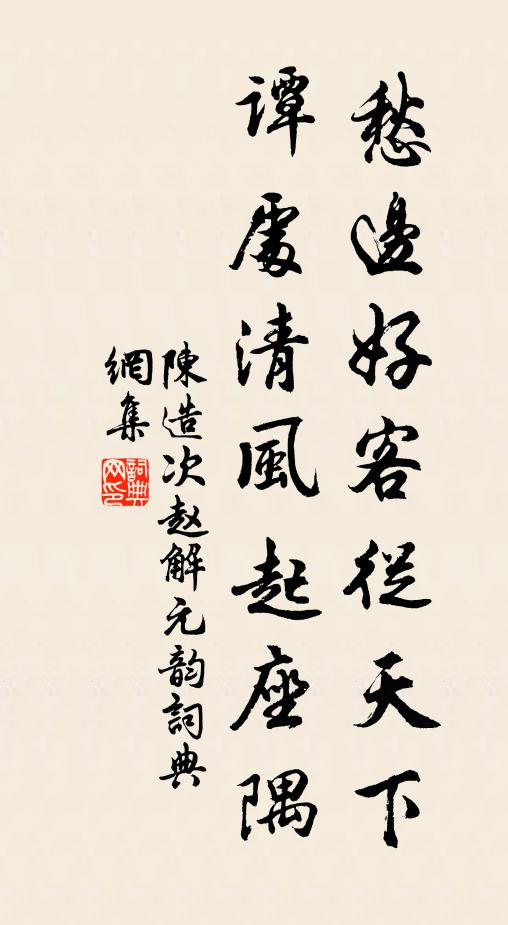 愁邊好客從天下
譚處清風起座隅
陳造次赵解元韵詞典
網集
詞典
网印